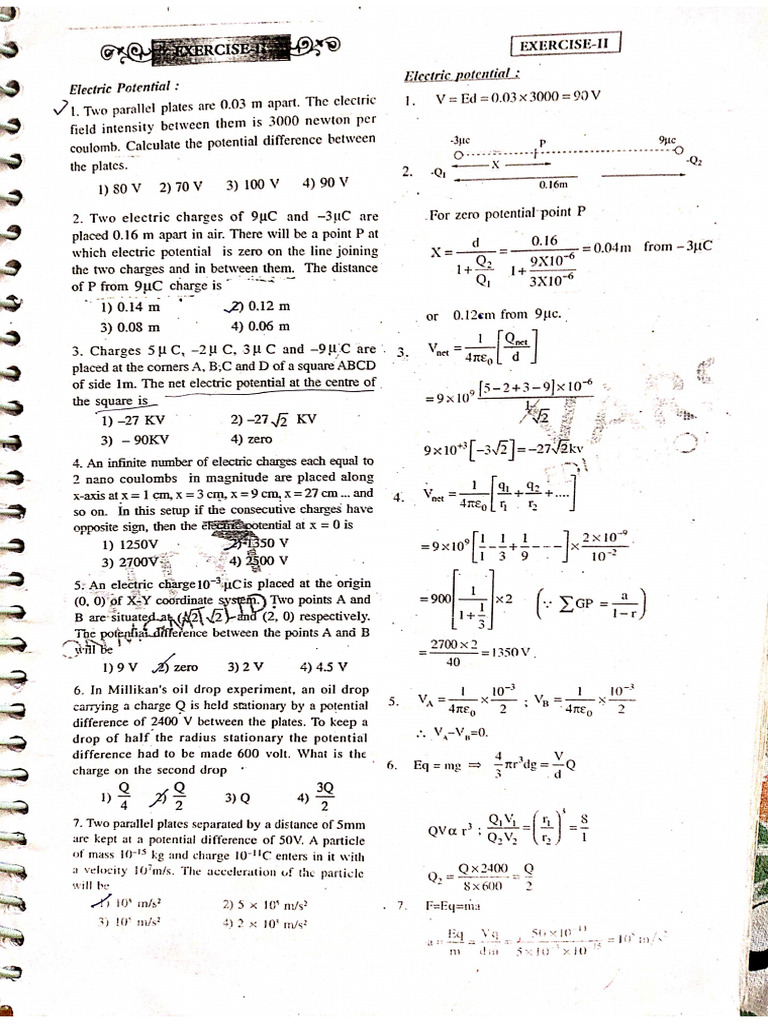 EXERCISE-II
Electric Potential :
1. Two parallel plates are 0.03 m apart. The electric
field intensity between them is 3000 newton per
coulomb. Calculate the potential difference between
the plates.
1) 80 V 2) 70 V 3) 100 V 4) 90 V
2. Two electric charges of 9μC and –3μC are
placed 0.16 m apart in air. There will be a point P at
which electric potential is zero on the line joining
the two charges and in between them. The distance
of P from 9μC charge is
1) 0.14 m 2) 0.12 m
3) 0.08 m 4) 0.06 m
3. Charges 5μC, –2μC, 3μC and –9μC are
placed at the corners A, B,C and D of a square ABCD
of side 1m. The net electric potential at the centre of
the square is
1) –27 KV 2) –27√2 KV
3) – 90KV 4) zero
4. An infinite number of electric charges each equal to
2 nano coulombs in magnitude are placed along
x-axis at x = 1 cm, x = 3 cm, x = 9 cm, x = 27 cm ... and
so on. In this setup if the consecutive charges have
opposite sign, then the electric potential at x = 0 is
1) 1250V 2) 1350 V
3) 2700V 4) 2500 V
5. An electric charge 10⁻³ μC is placed at the origin
(0, 0) of X-Y coordinate system. Two points A and
B are situated at (√2, √2) and (2, 0) respectively.
The potential difference between the points A and B
will be
1) 9 V 2) zero 3) 2 V 4) 4.5 V
6. In Millikan's oil drop experiment, an oil drop
carrying a charge Q is held stationary by a potential
difference of 2400 V between the plates. To keep a
drop of half the radius stationary the potential
difference had to be made 600 volt. What is the
charge on the second drop
1) Q/4 2) Q/2 3) Q 4) 3Q/2
7. Two parallel plates separated by a distance of 5mm
are kept at a potential difference of 50V. A particle
of mass 10⁻¹⁵ kg and charge 10⁻¹¹C enters in it with
a velocity 10⁷m/s. The acceleration of the particle
will be
1) 10⁸ m/s² 2) 5 × 10⁸ m/s²
3) 10⁵ m/s² 4) 2 × 10⁸ m/s²
EXERCISE-II
Electric potential :
1. V = Ed = 0.03 × 3000 = 90 V
-3μc P 9μc
2. -Q₁ X -Q₂
0.16m
For zero potential point P
X = d/(1+Q₂/Q₁) = 0.16/(1+9X10⁻⁶/3X10⁻⁶) = 0.04m from – 3μC
or 0.12cm from 9μc.
3. Vnet = 1/4πε₀ [Qnet/d]
= 9×10⁹ [5–2+3–9]×10⁻⁶ / 1/√2
9×10⁺³[–3√2] = –27√2kv
4. Vnet = 1/4πε₀ [q₁/r₁ + q₂/r₂ + ....]
= 9×10⁹ [1/1 – 1/3 + 1/9 - - - -] × 2×10⁻⁹/10⁻²
= 900[1/(1+1/3)] × 2 (∵ ∑GP = a/(1–r))
= 2700×2/40 = 1350V.
5. VA = 1/4πε₀ × 10⁻³/2 ; VB = 1/4πε₀ × 10⁻³/2
∴ VA–VB=0.
6. Eq = mg ⇒ 4/3 πr³dg = V/d Q
QVα r³ ; Q₁V₁/Q₂V₂ = (r₁/r₂)³ = 8/1
Q₂ = Q×2400/8×600 = Q/2
7. F=Eq=ma
a = Eq/m = Vq/dm